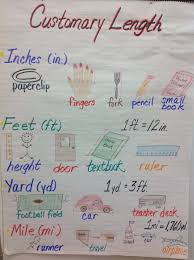 Customary Length
Inches (in.)
paperclip
fingers fork pencil small book
Feet (ft) 1ft = 12in.
height door textbook ruler
Yard (yd) 1yd = 3ft
football field car teacher desk
Mile (mi.) 1mi = 1,760yd
runner travel airplane